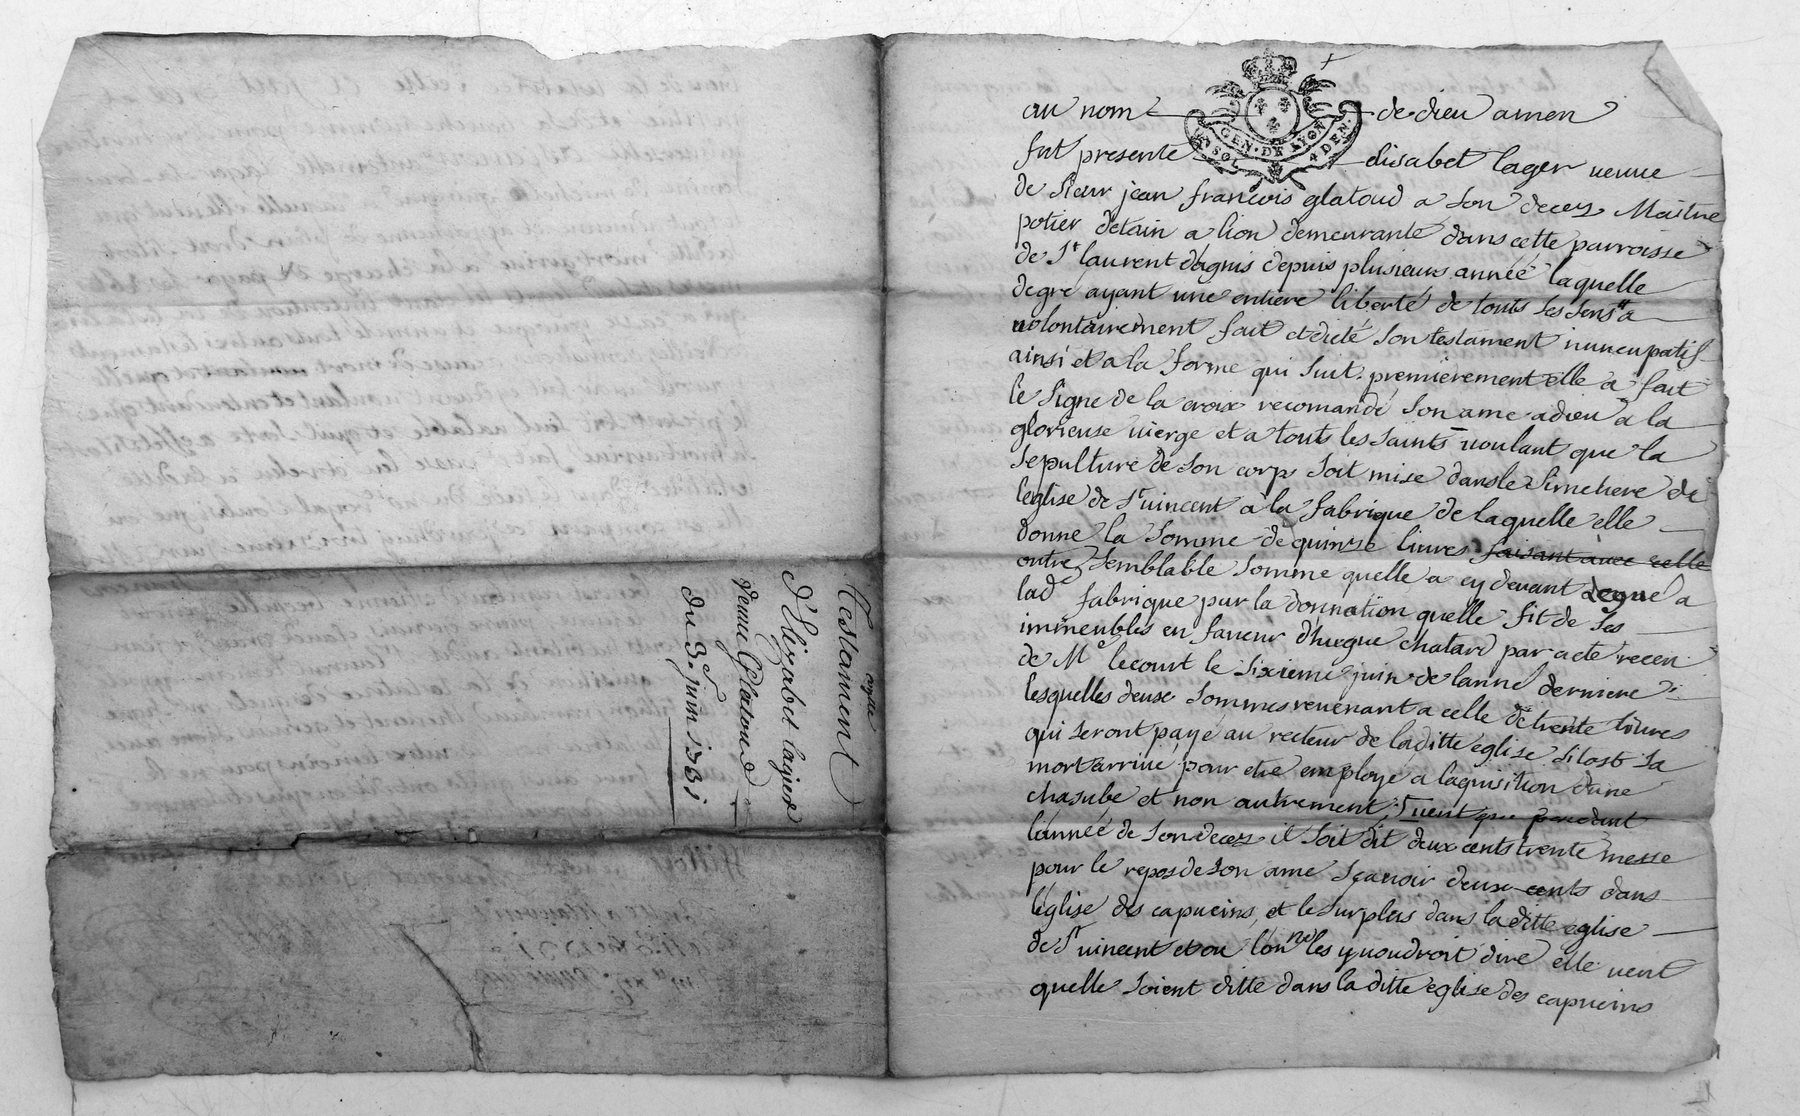 Testament
copie
d'Elizabet lagier
veuve Glatoud
du 3e. juin 1731
au nom de dieu amen
GEN. DE LYON
SOL 4 DEN.
fut presente elisabet lager veuve
de sieur jean francois glatoud a son decez Maitre
potier detain a lion demeurante dans cette parroisse
de St laurent dagnis depuis plusieurs année laquelle
degre ayant une entiere liberté de touts ses sens a
volontairement fait et dicté son testament nuncupatif
ainsi et a la forme qui suit. premierement elle a fait
le signe de la croix recomandé son ame a dieu a la
glorieuse vierge et a touts les saints voulant que la
sepulture de son corps soit mise dans le simetiere de
leglise de St vincent a la fabrique de laquelle elle
donne la somme de quinze livres faisant avec celle
outre semblable somme quelle a cy devant legué a
lad fabrique par la donnation quelle fit de ses
immeubles en faveur dhugue chatard par acte receu
de Me lecourt le sixieme juin de lanné derniere
lesquelles deux sommes revenant a celle de trente livres
qui seront payé au recteur de laditte eglise sitost sa
mort arrivé pour etre employé a laquisition dune
chasube et non autrement, veut que pendant
lannéé de son decez il soit dit deux cents trente messe
pour le repos de son ame sçavoir deux cents dans
léglise des capucins, et le surplus dans la ditte eglise
de St vincent et ou lon ne les y voudroit dire elle veut
quelle soient ditte dans la ditte eglise des capucins